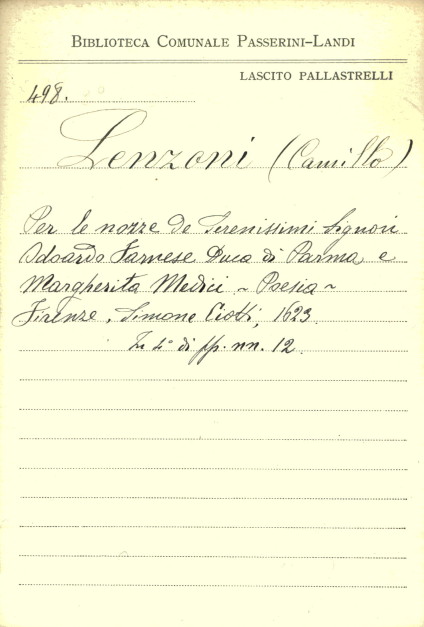 BIBLIOTECA COMUNALE PASSERINI-LANDI
LASCITO PALLASTRELLI
498.
Lenzoni (Camillo)
Per le nozze de Serenissimi Signori
Odoardo Farnese Duca di Parma e
Margherita Medici ~ Poesia ~
Firenze, Simone Ciotti, 1623
In 4° di pp. nn. 12.